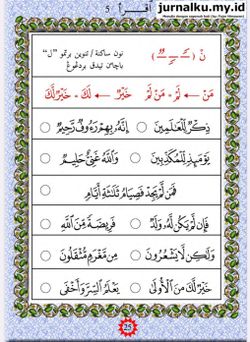 jurnalku.my.id
اقرأ 5
نْ ( ـًـ ـٍـ ـٌـ )
نون ساكنة / تنوين برتمو "ل"
باچاءن تيدق بردڠوڠ
مَنْ ← لَمْ - مَنْ لَمْ خَيْرٌ ← لَكَ - خَيْرٌ لَّكَ
ذِكْرٌ لِّلْعَالَمِينَ ○ إِنَّهُ بِهِمْ رَءُوفٌ رَّحِيمٌ ○
يَوْمَئِذٍ لِّلْمُكَذِّبِينَ ○ وَاللَّهُ غَنِيٌّ حَلِيمٌ ○
فَمَن لَّمْ يَجِدْ فَصِيَامُ ثَلَاثَةِ أَيَّامٍ
فَإِن لَّمْ يَكُن لَّهُ وَلَدٌ ○ فَرِيضَةً مِّنَ اللَّهِ ○
وَلَكِن لَّا يَشْعُرُونَ ○ مِن مَّغْرَمٍ مُّثْقَلُونَ ○
خَيْرٌ لَّكَ مِنَ الْأُولَى ○ يَعْلَمُ السِّرَّ وَأَخْفَى ○
25